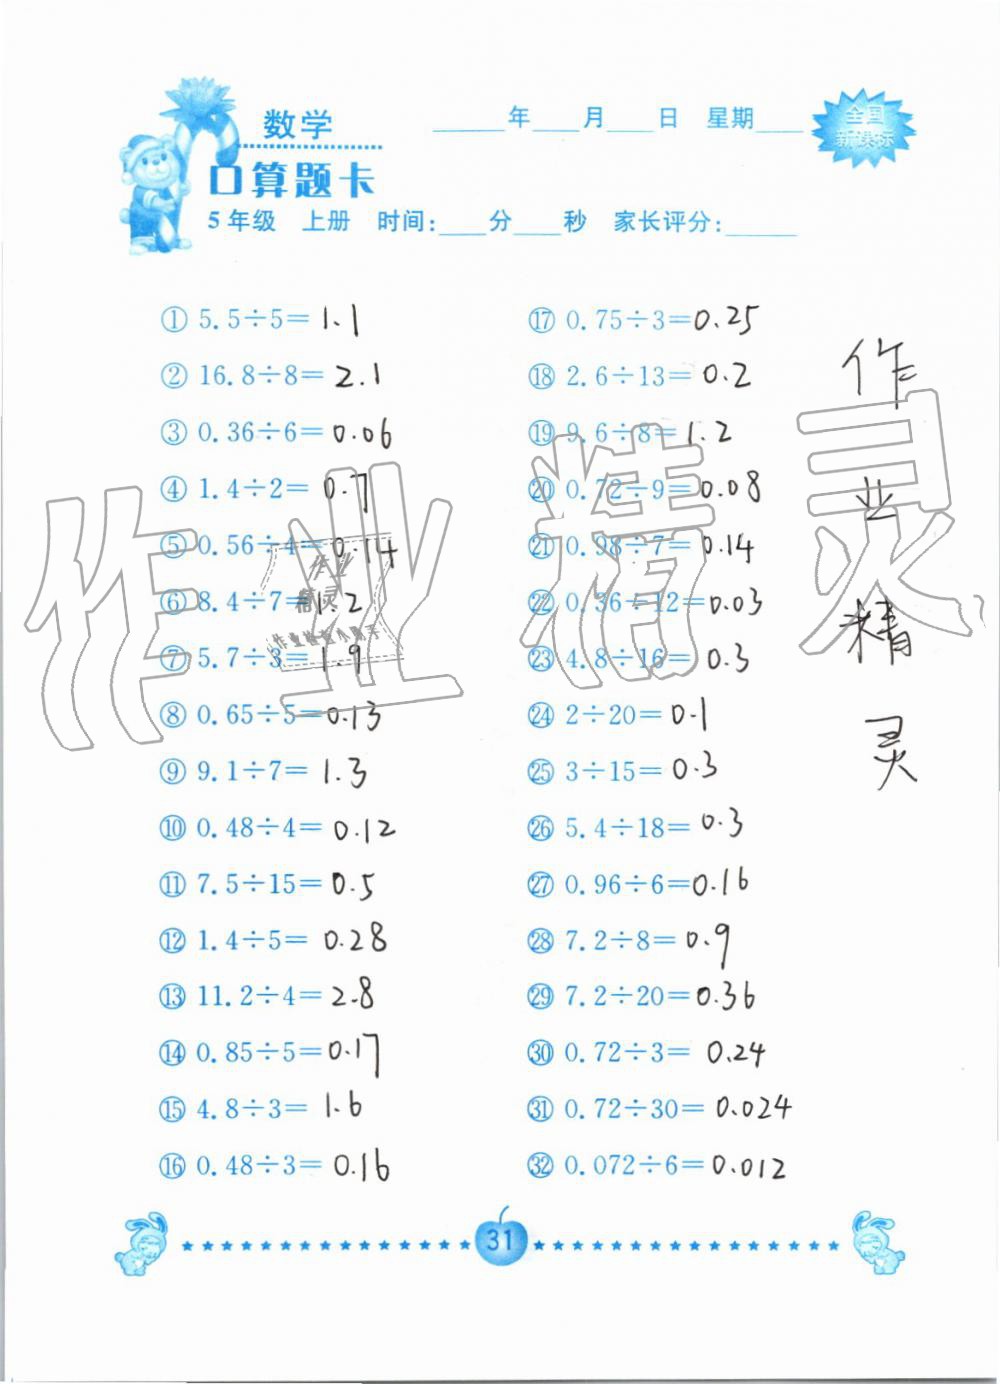 数学
____年___月___日 星期___
全国
新课标
口算题卡
5年级 上册 时间:___分___秒 家长评分:_____
① 5.5÷5=1.1
② 16.8÷8=2.1
③ 0.36÷6=0.06
④ 1.4÷2=0.7
⑤ 0.56÷4=0.14
⑥ 8.4÷7=1.2
⑦ 5.7÷3=1.9
⑧ 0.65÷5=0.13
⑨ 9.1÷7=1.3
⑩ 0.48÷4=0.12
⑪ 7.5÷15=0.5
⑫ 1.4÷5=0.28
⑬ 11.2÷4=2.8
⑭ 0.85÷5=0.17
⑮ 4.8÷3=1.6
⑯ 0.48÷3=0.16
⑰ 0.75÷3=0.25
⑱ 2.6÷13=0.2
⑲ 9.6÷8=1.2
⑳ 0.72÷9=0.08
㉑ 0.98÷7=0.14
㉒ 0.36÷12=0.03
㉓ 4.8÷16=0.3
㉔ 2÷20=0.1
㉕ 3÷15=0.3
㉖ 5.4÷18=0.3
㉗ 0.96÷6=0.16
㉘ 7.2÷8=0.9
㉙ 7.2÷20=0.36
㉚ 0.72÷3=0.24
㉛ 0.72÷30=0.024
㉜ 0.072÷6=0.012
作
业
精
灵
作业精灵
作业
精灵
作业检查小助手
31